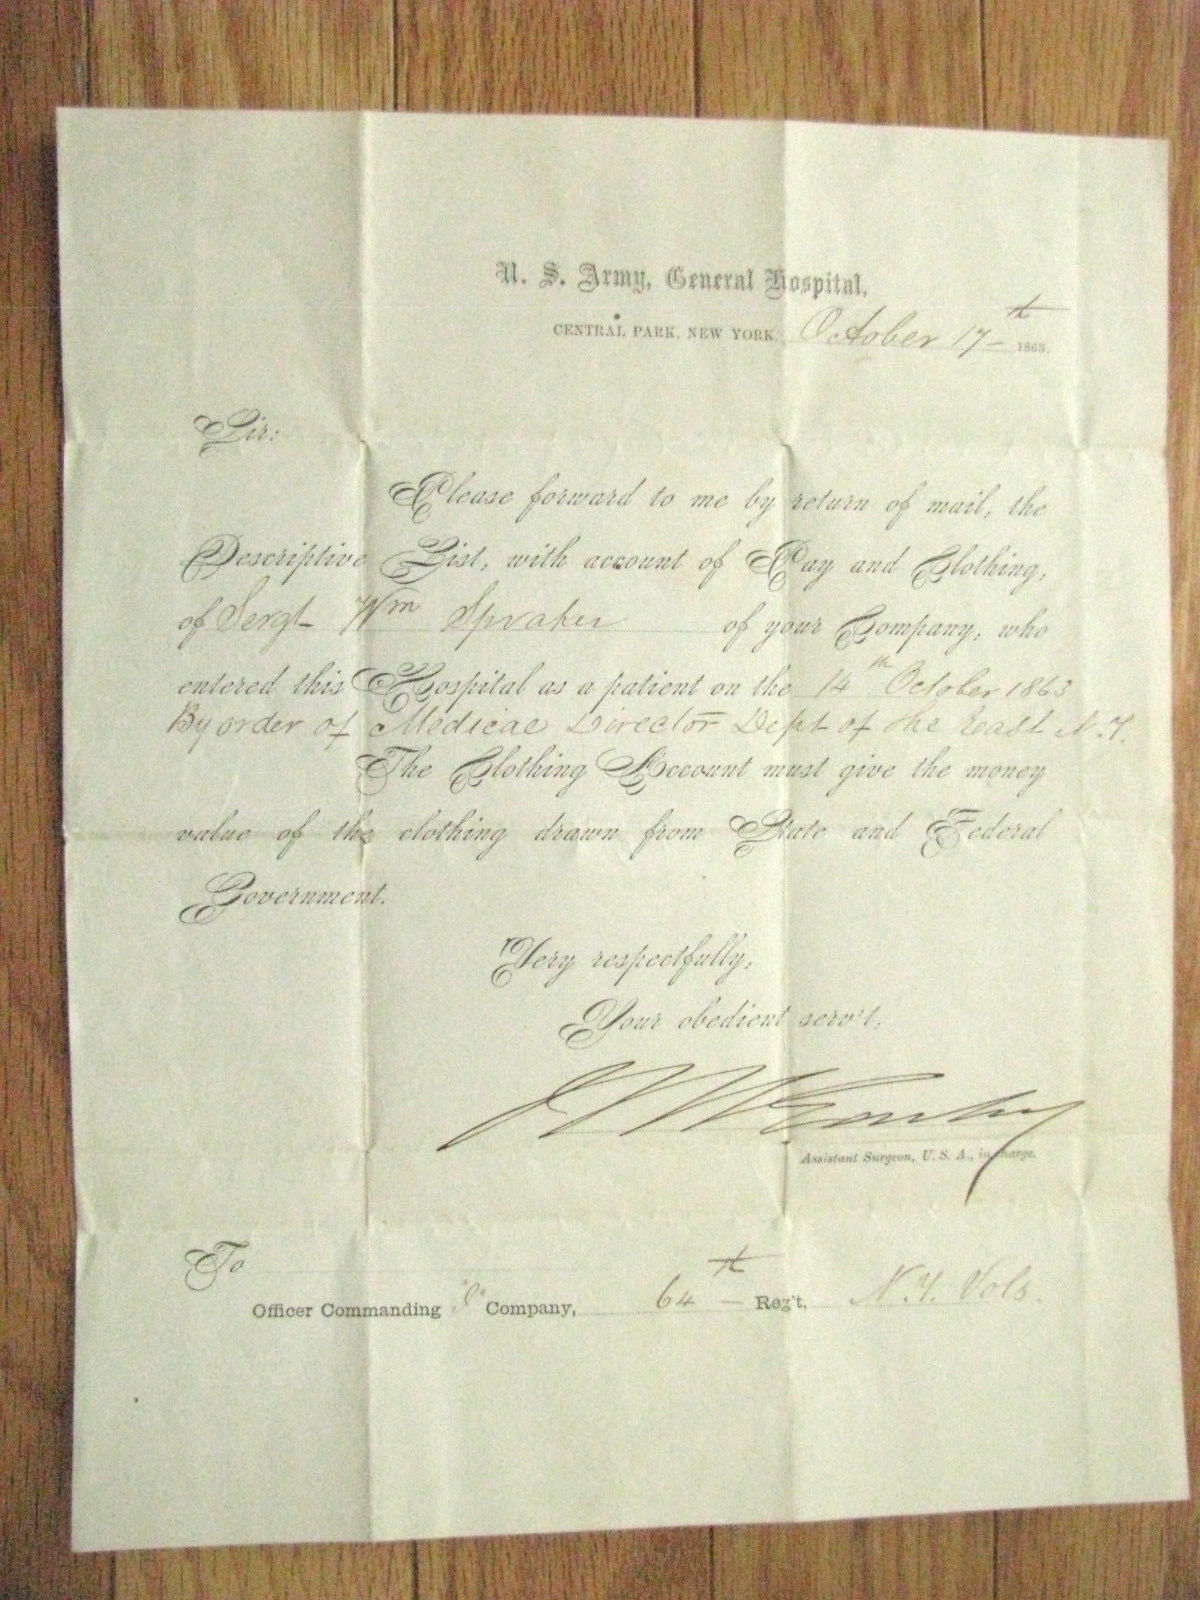 U. S. Army, General Hospital,
CENTRAL PARK, NEW YORK, October 17th 1863.
Sir:
Please forward to me by return of mail, the
Descriptive List, with account of Pay and Clothing,
of Sergt Wm Spraker of your Company, who
entered this Hospital as a patient on the 14th October 1863
By order of Medical Director Dept of the East N.Y.
The Clothing Account must give the money
value of the clothing drawn from State and Federal
Government.
Very respectfully,
Your obedient serv't,
Assistant Surgeon, U. S. A., in charge.
To
Officer Commanding Company, 64th Reg't, N.Y. Vols.